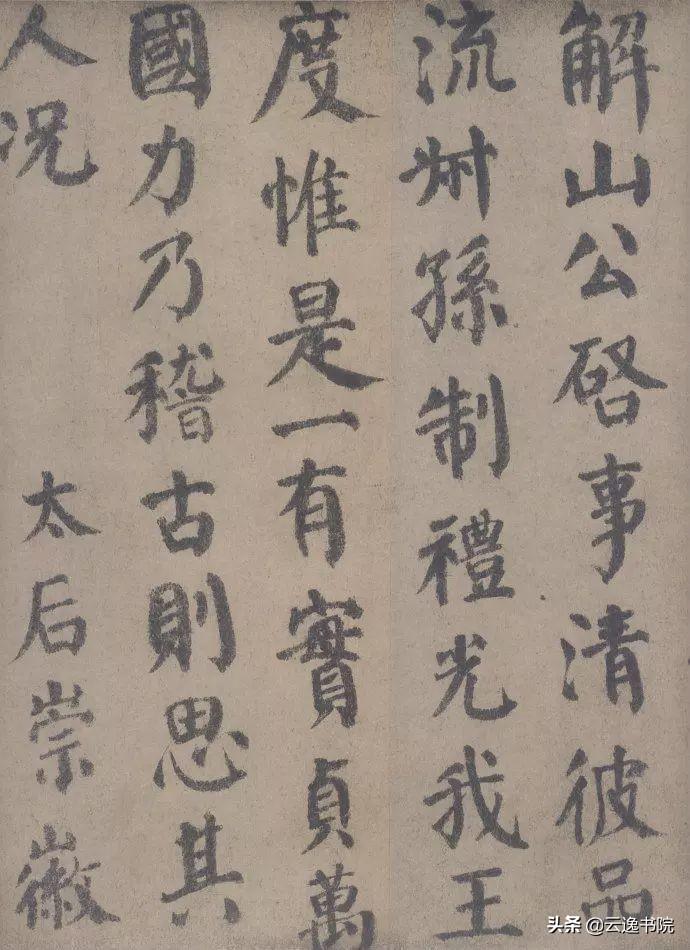 解山公啓事清彼品
流叔孫制禮光我王
度惟是一有實貞萬
國力乃稽古則思其
人況 太后崇徽
头条 @云逸书院